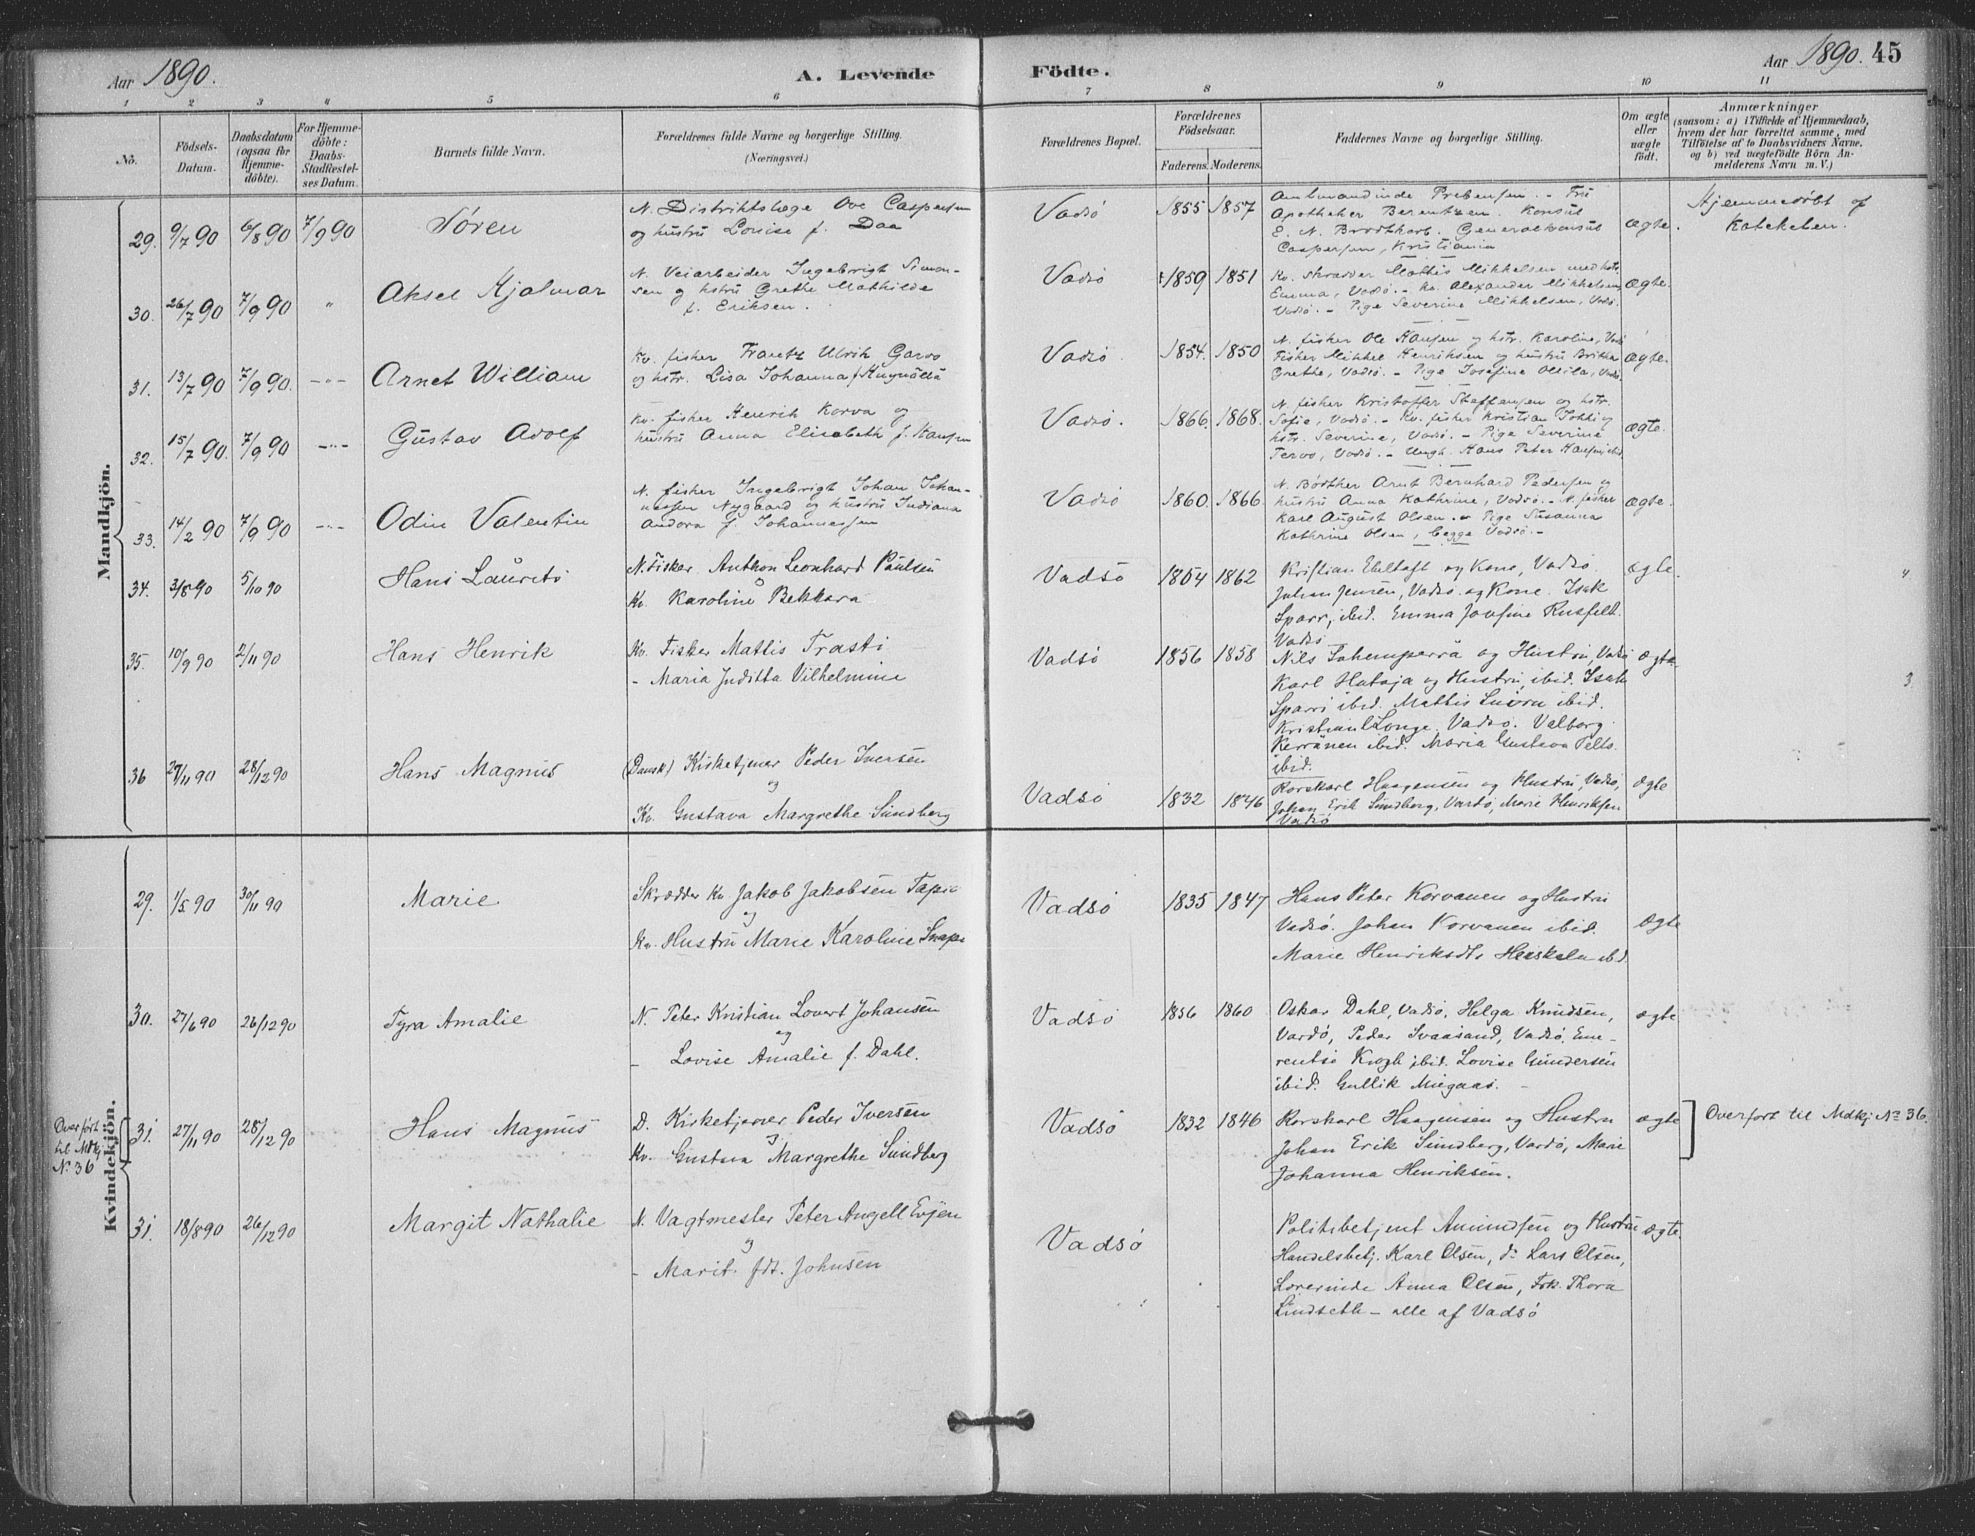 Aar 1890.
A. Levende
Födte.
Aar 1890. 45
1 2 3 4 5 6 7 8 9 10 11
No.
Födsels-
Datum.
Daabsdatum
(ogsaa for
Hjemme-
döbte).
For Hjemme-
döbte:
Daabs-
Stadfæstel-
ses Datum.
Barnets fulde Navn.
Forældrenes fulde Navne og borgerlige Stilling.
(Næringsvei.)
Forældrenes Bopæl.
Forældrenes
Födselsaar.
Faderens. Moderens.
Faddernes Navne og borgerlige Stilling.
Om ægte
eller
uægte
födt.
Anmærkninger
(saasom: a) i Tilfælde af Hjemmedaab,
hvem der har forrettet samme, med
Tilföielse af to Daabsvidners Navne,
og b) ved uægtefödte Börn An-
melderens Navn m. V.)
Mandkjön.
29. 9/7 90 6/8 90 7/9 90 Søren
N. Distriktslæge Ove Caspersen
og hustru Louise f. Daa
Vadsö 1855 1857
Amtmandinde Prebensen. - Fru
Apotheker Berentzen. Konsul
E. N. Brodtkorb. Generalkonsul
Caspersen, Kristiania
ægte.
Hjemmedøbt af
Kateketen.
30. 26/7 90 7/9 90 " Aksel Hjalmar
N. Veiarbeider Ingebrigt Simon-
sen og hstru Grethe Mathilde
f. Eriksen.
Vadsö 1859 1851
Kv. Skrædder Mattis Mikkelsen med hstr.
Emma, Vadsö. - kv. Alexander Mikkelsen,
Vadsö. - Pige Severine Mikkelsen, Vadsö.
ægte.
31. 13/7 90 7/9 90. -"- Arnet William
Kv. fisher Frantz Ulrik Garvo
og hstr. Lisa Johanna f.
Vadsö. 1854. 1850
N. fisher Ole Hansen og hstr. Karoline,
Fisher Mikkel Henriksen og hustru Britha
Grethe, Vadsö. - Pige Josefine Ollila, Vadsö.
ægte.
32. 15/7 90. 7/9 90 -"- Gustav Adolf
Kv. fisher Henrik Korva og
hustru Anna Elisabeth f. Hansen
Vadsö. 1866. 1868.
N. fisher Kristoffer Steffensen og hstr.
Sofie, Vadsö. - Kv. fisher Kristian og
hstr. Severine, Vadsö. - Pige Severine
Tervo, Vadsö. - Ungk. Hans Peter Hansen, ibid.
ægte.
33. 14/2 90 7/9 90 -"- Odin Valentin
N. fisher Ingebrigt Johan Johan-
nessen Nygaard og hustru Indiana
Andora f. Johannessen
Vadsö 1860. 1866.
N. Bødther Arnt Bernhard Pedersen og
hustru Anna Kathrine, Vadsö. - N. fisher
Karl August Olsen. - Pige Susanna
Kathrine Olsen, begge Vadsö. -
ægte.
34. 3/8 90 5/10 90 Hans Laurits
N. Fisker Anthon Leonhard Paulsen
og
Kv. Karoline Bekkara
Vadsö 1864 1862
Kristian Ebeltoft og Kone, Vadsö.
Johan Jensen, Vadsö. og Kone. Isak
Sparr, ibid. Emma Josefine Rusfelt.
Vadsö
ægte.
4
35. 10/9 90 2/11 90 Hans Henrik
Kv. Fisker Mattis Trasti
- Maria Juditta Vilhelmine
Vadsö 1856 1858
Nils og Hustru, Vadsö
Karl Hataja og Hustru ibid. Isak
Sparri ibid. Mattis ibid.
Kristian Lange. Vadsö. Valborg
Kerränen ibid. Maria Gustava Pelto
ibid.
ægte.
3
36 27/11 90 28/12 90 Hans Magnus
(Dansk) Kirketjener Peder Iversen
og
Kv. Gustava Margrethe Sundberg
Vadsö 1832 1846
Korskarl Haagensen og Hustru, Vadsö,
Johan Erik Sundberg, Vardö, Marie Henriksen
Vadsö
ægte
Kvindekjön.
29. 1/5 90 30/11 90 Marie
Skrædder Kv Jakob Jakobsen Tapio
og
Kv. Hustru Marie Karoline
Vadsö 1835 1847
Hans Peter Korvanen og Hustru
Vadsö. Johan Korvanen ibid.
Marie Henriksdtr Heiskela ibd.
ægte
30. 27/6 90 26/12 90 Tyra Amalie
N. Peter Kristian Lovert Johansen
og
- Lovise Amalie f. Dahl.
Vadsö 1856 1860
Oskar Dahl, Vadsö, Helga Knudsen,
Vardö, Peder Svaasand, Vadsö, Eme-
rentse Krogh ibid. Lovise Gundersen
ibid. Gullik Miegaas. -
ægte
Overført
til Mdkj
No. 36
31. 27/11 90 28/12 90 Hans Magnus
D. Kirketjener Peder Iversen
og
Kv. Gustava Margrethe Sundberg
Vadsö 1832 1846
Korskarl Haagensen og Hustru
Johan Erik Sundberg, Vardö, Marie
Johanna Henriksen.
ægte
Overført til Mdkj No 36.
31. 18/8 90 26/12 90 Margit Nathalie
N. Vagtmester Peter Angell Evjen
og
- Marit. fdt. Johnsen
Vadsö
Politibetjent Amundsen og Hustru
Handelsbetj. Karl Olsen, do Lars Olsen,
Lærerinde Anna Olsen, Frk. Thora
Lindseth - alle af Vadsö
ægte.